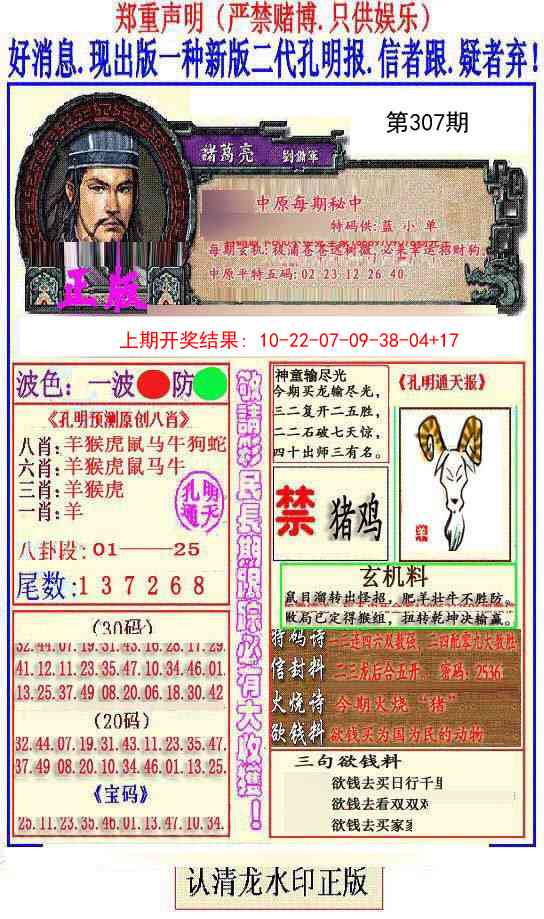 郑重声明（严禁赌博.只供娱乐）
好消息.现出版一种新版二代孔明报.信者跟.疑者弃！
第307期
諸葛亮 劉備軍
中原每期秘中
特码供:蓝 小 单
每期玄机:
必主幸运招财狗
中原平特五码:02 23 12 26 40
正版
上期开奖结果: 10-22-07-09-38-04+17
波色：一波 防
《孔明预测原创八肖》
八肖:羊猴虎鼠马牛狗蛇
六肖:羊猴虎鼠马牛
三肖:羊猴虎
一肖:羊
孔明通天
八卦段:01——25
尾数:137268
敬請彩民長期跟踪必有大收獲！
神童输尽光
今期买龙输尽光，
三二复开二五胜，
二二石破七天惊，
四十出师三有名。
《孔明通天报》
禁 猪鸡
羊
玄机料
鼠目溜转出怪招，肥羊壮牛不胜防。
败局已定得猴组，扭转乾坤决输赢。
(30码)
32.44.07.19.31.43.16.28.17.29.
41.12.11.23.35.47.10.34.46.01.
13.25.37.49 08.20.06.18.30.42
(20码)
32.44.07.19.31.43.11.23.35.47.
37.49 08.20.10.34.46.01.13.25.
《宝码》
25.11.23.35.46.01.13.47.10.34.
特码诗 二三连四六双数强，三四配零九大数胜
信封料 二三龙后合五开。 密码：2536.
火烧诗 今期火烧“猪”
欲钱料 欲钱买为国为民的动物
三句欲钱料
欲钱去买日行千
欲钱去看双双
欲钱去买家
认清龙水印正版